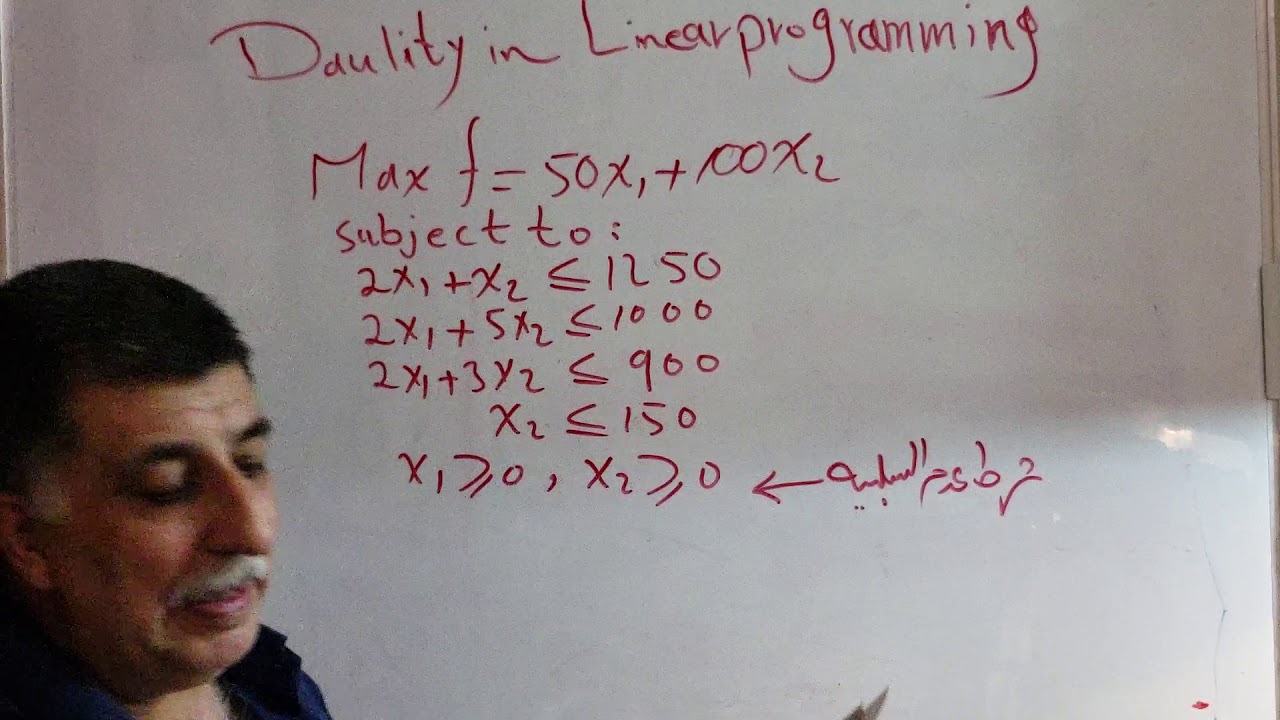 Daulity in Linear programming
Max f = 50x₁ + 100x₂
subject to:
2x₁ + x₂ ≤ 1250
2x₁ + 5x₂ ≤ 1000
2x₁ + 3x₂ ≤ 900
x₂ ≤ 150
x₁ ≥ 0 , x₂ ≥ 0 ← شرط عدم السلبية